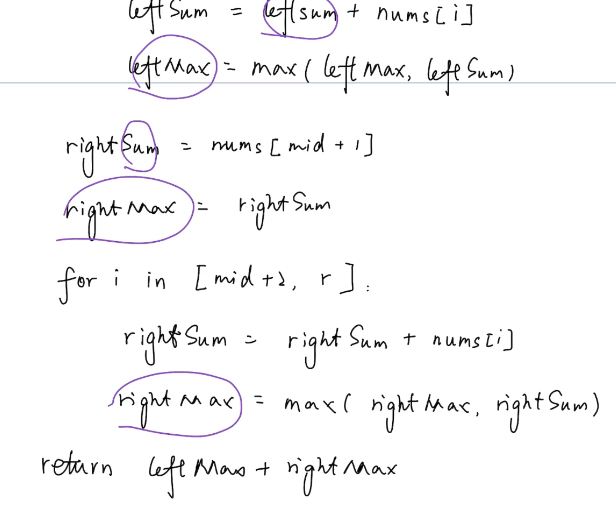 leftSum = leftsum + nums[i]
leftMax = max(leftMax, leftSum)
rightSum = nums[mid+1]
rightMax = rightSum
for i in [mid+2, r]:
rightSum = rightSum + nums[i]
rightMax = max(rightMax, rightSum)
return leftMax + rightMax